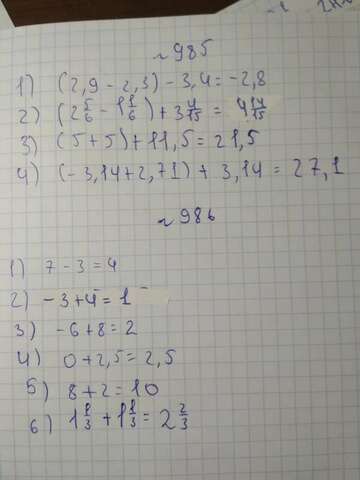 ~985
1) (2,9 - 2,3) - 3,4 = -2,8
2) (2 5/6 - 1 1/6) + 3 4/15 = 4 14/15
3) (5 + 5) + 11,5 = 21,5
4) (- 3,14 + 2,71) + 3,14 = 27,1
~986
1) 7 - 3 = 4
2) - 3 + 4 = 1
3) - 6 + 8 = 2
4) 0 + 2,5 = 2,5
5) 8 + 2 = 10
6) 1 1/3 + 1 1/3 = 2 2/3